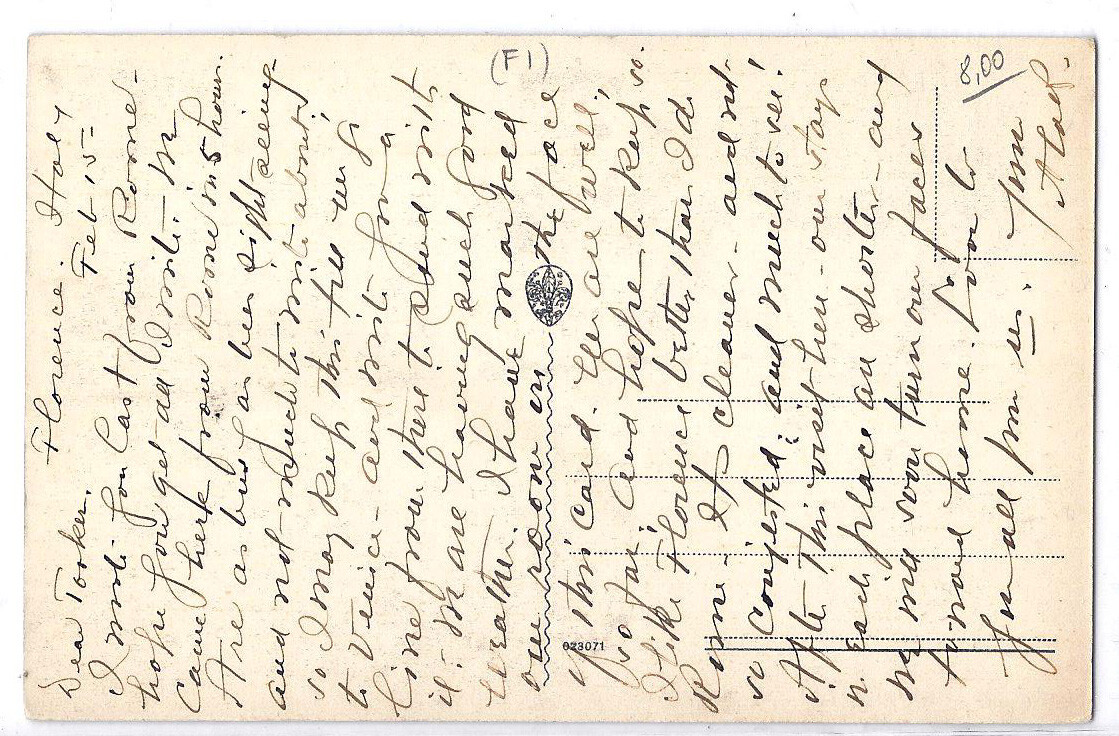 Florence Italy
Feb 15-
Dear Tooker.
I wrote you last from Rome-
hope you get all I write - We
came here from Rome in 5 hours.
Are as busy as bees sight seeing-
and not much to write about,
so I may keep this till we go
to Venice - and write you a
line from there to send with
it: We are having such good
weather. I have marked
our room on the face
of this card. We are well,
so far, and hope to keep so.
I like Florence better than I d
Rome - It cleaner - and not
so congested; and much to see!
After this visit here - our stay
in each place are shorter - and
we will soon turn our faces
toward home. Love to
you all from us.
Your
(F1)
8,00
023071